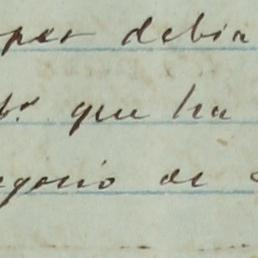 per debia
que ha
egorio de